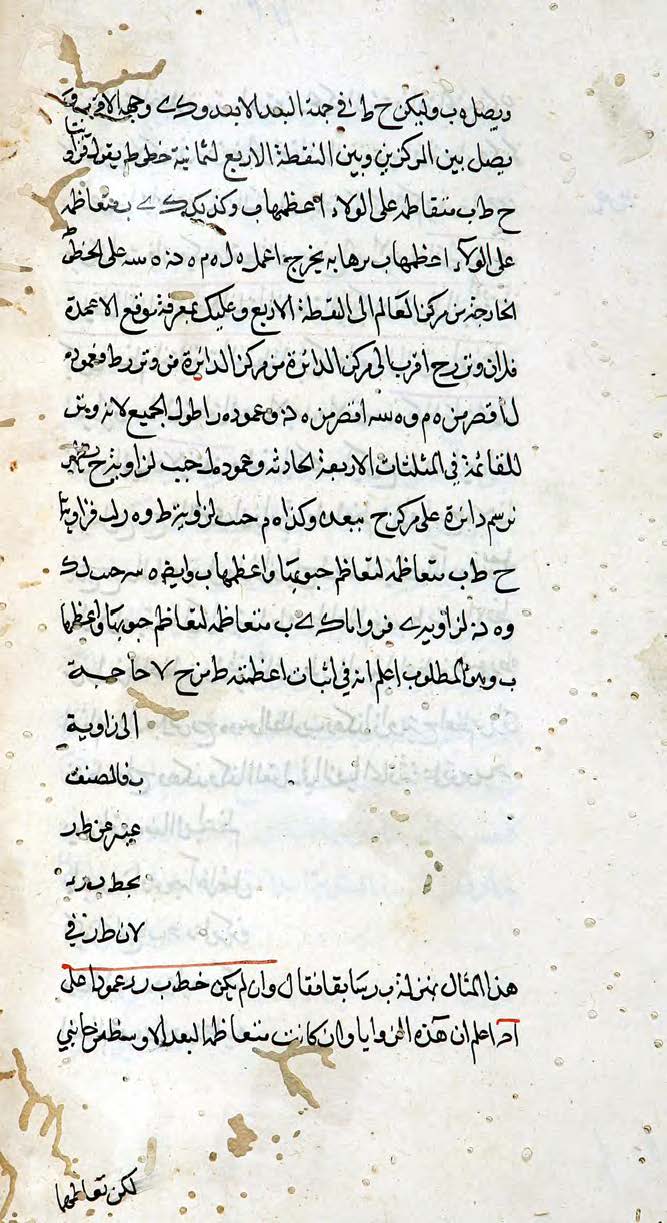 ويصل ه ب وليكن ح ط في جهة البعد الابعد و ك ى وجهة الاقرب و
يصل بين المركزين وبين النقطة الاربع ثمانية خطوط يقول فزاويتا
ح ط ب متقاطه على الولاء اعظمها ب وكذلك ك ى ب متعاظمه
على الولاء اعظمها ب برهانه يخرج اعمده ه ل ه م ه د ه سه على الخطوط
الخارجة من مركز العالم الى النقطة الاربع وعليك بمعرفة موقع الاعمدة
فلان وتر رح اقرب الى مركز الدائرة من مركز الدائرة من وتر رط فعمود ه
ل اقصر من ه م و ه سه اقصر من ه د وعمود ه ر اطول الجميع لانه وتر
للقائمة في المثلثات الاربعة الحادثه وعمود ه ل جيب لزاوية ح
نرسم دائرة على مركز ح ببعد ه وكذا ه م جيب لزاوية ط و ه ر ل ب فزوايا
ح ط ب متعاظمه لتعاظم جيوبها واعظمها ب وايضا ه سه جيب ل ك
و ه د لزاوية ى فزوايا ك ى ب متعاظمه لتعاظم جيوبها واعظمها
ب وهو المطلوب اعلم انه في اثبات اعظمية ط من ح لا حاجة
الى زاوية
ب فالمصنف
عبر عن ط ر
بخط ب ر
لان ط ر في
هذا المثال بمنزلة ب ر سابقا فقال وان لم يكن خط ب ر عمودا على
ا د اعلم ان هذه الزوايا وان كانت متعاظمه البعد الاوسط من جانبي
لكن تعاظمها